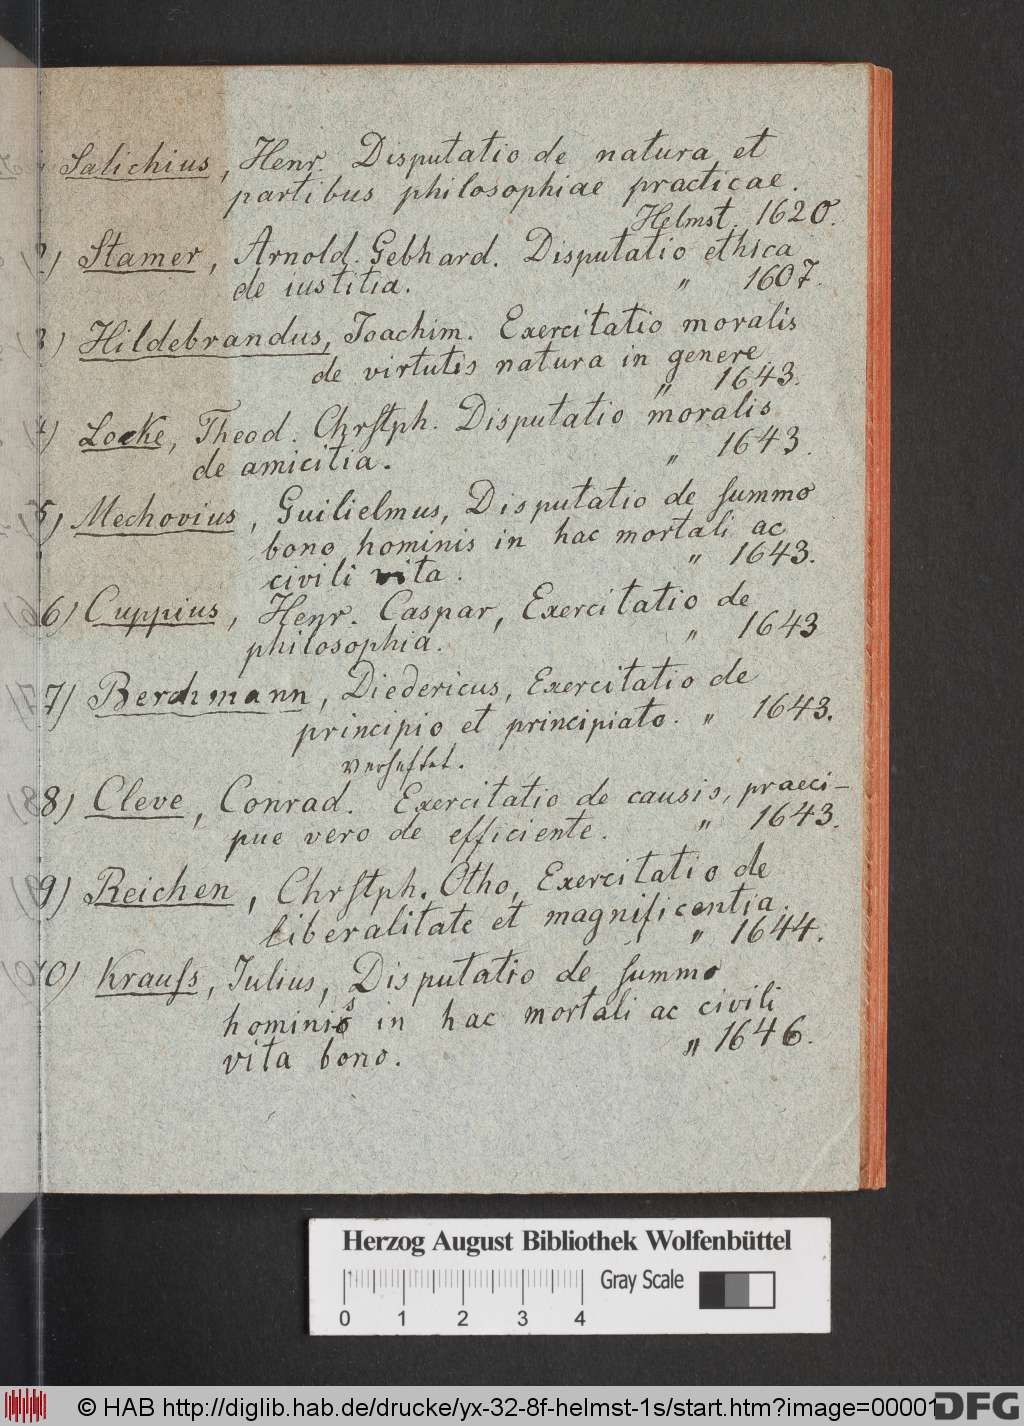 Salichius, Henr. Disputatio de natura et
partibus philosophiae practicae.
Helmst. 1620.
2) Stamer, Arnold. Gebhard. Disputatio ethica
de iustitia. " 1607.
3) Hildebrandus, Joachim. Exercitatio moralis
de virtutis natura in genere
" 1643.
4) Locke, Theod. Chrstph. Disputatio moralis
de amicitia. " 1643.
5) Mechovius, Guilielmus, Disputatio de summo
bono hominis in hac mortali ac
civili vita. " 1643.
6) Cuppius, Henr. Caspar, Exercitatio de
philosophia. " 1643
7) Berchmann, Diedericus, Exercitatio de
principio et principiato. " 1643.
verheftet.
8) Cleve, Conrad. Exercitatio de causis, praeci-
pue vero de efficiente. " 1643.
9) Reichen, Chrstph. Otho, Exercitatio de
liberalitate et magnificentia.
" 1644.
10) Krauss, Julius, Disputatio de summo
hominis in hac mortali ac civili
vita bono. " 1646.
Herzog August Bibliothek Wolfenbüttel
Gray Scale
0 1 2 3 4
© HAB http://diglib.hab.de/drucke/yx-32-8f-helmst-1s/start.htm?image=00001
DFG